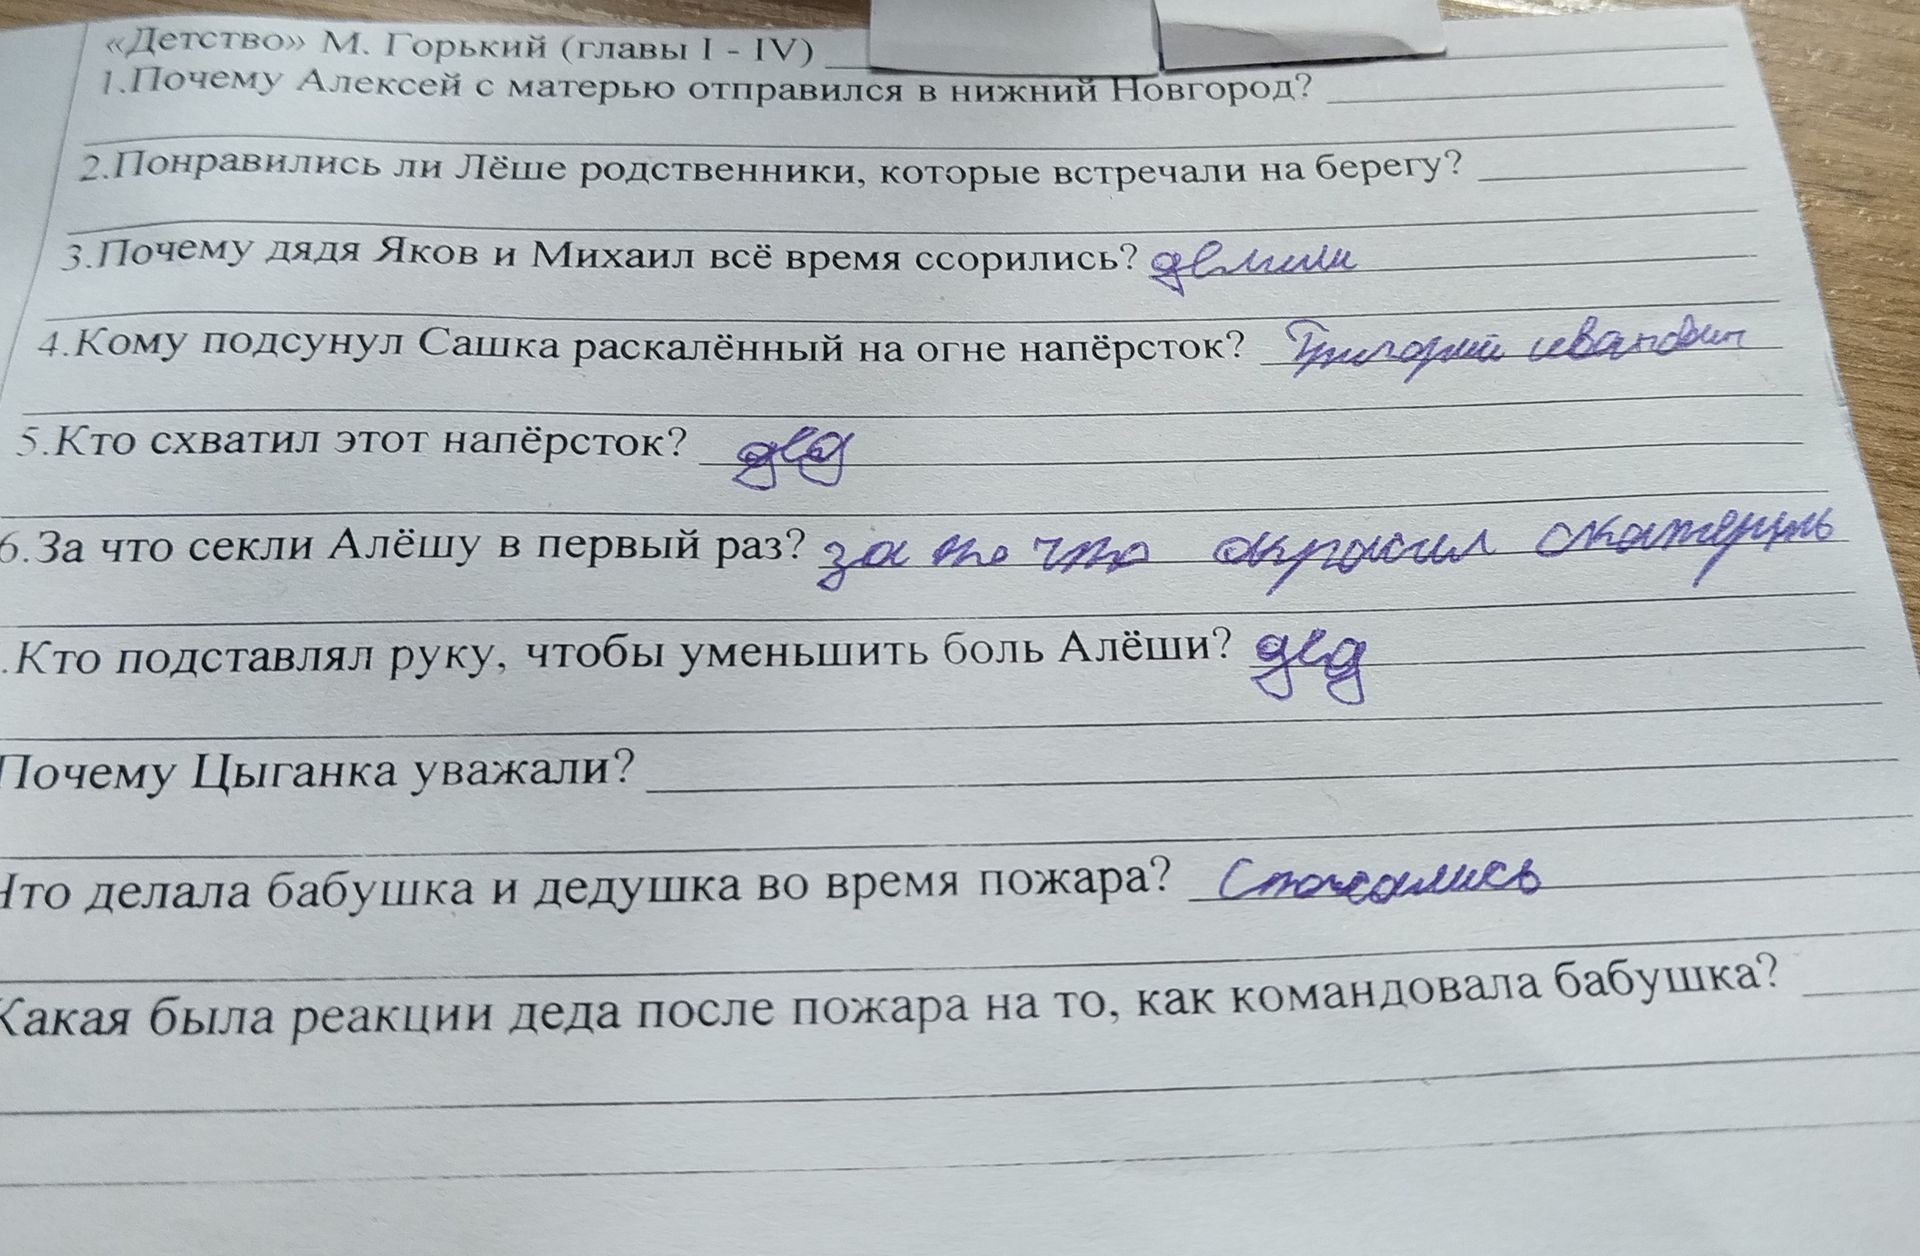 «Детство» М. Горький (главы I - IV)
1.Почему Алексей с матерью отправился в нижний Новгород?
2.Понравились ли Лёше родственники, которые встречали на берегу?
3.Почему дядя Яков и Михаил всё время ссорились? делили
4.Кому подсунул Сашка раскалённый на огне напёрсток? Григорий иванович
5.Кто схватил этот напёрсток? дед
6.За что секли Алёшу в первый раз? за то что окрасил скатерть
.Кто подставлял руку, чтобы уменьшить боль Алёши? дед
Почему Цыганка уважали?
Что делала бабушка и дедушка во время пожара? Спасались
Какая была реакции деда после пожара на то, как командовала бабушка?